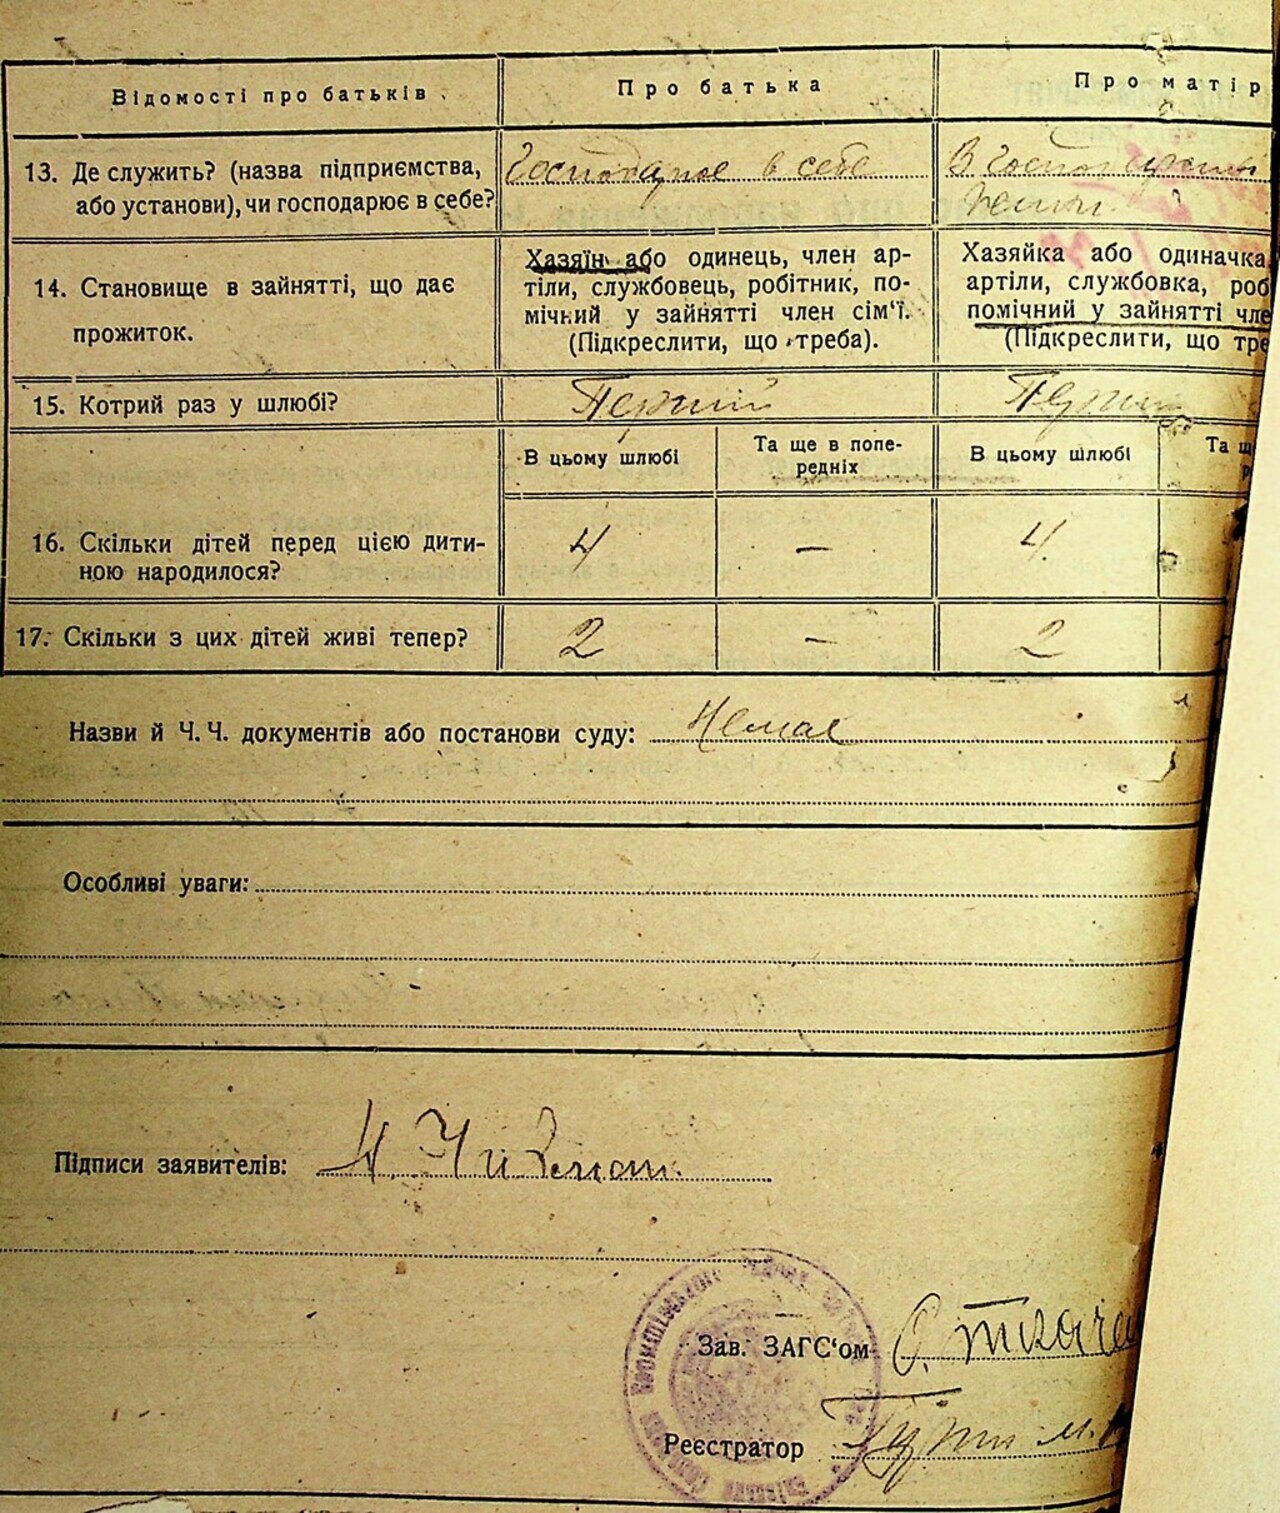 Відомості про батьків.
Про батька
Про матір
13. Де служить? (назва підприємства,
або установи), чи господарює в себе?
Господарює в себе
В господарстві
14. Становище в зайнятті, що дає
прожиток.
Хазяїн або одинець, член ар-
тіли, службовець, робітник, по-
мічний у зайнятті член сім‘ї.
(Підкреслити, що треба).
Хазяйка або одиначка
артіли, службовка, роб
помічний у зайнятті чле
(Підкреслити, що тре
15. Котрий раз у шлюбі?
Перший
В цьому шлюбі
Та ще в попе-
редніх
В цьому шлюбі
Та щ
16. Скільки дітей перед цією дити-
ною народилося?
4
—
4
17. Скільки з цих дітей живі тепер?
2
—
2
Назви й Ч. Ч. документів або постанови суду: Немає
Особливі уваги:
Підписи заявителів:
Зав. ЗАГС‘ом О. Ткаче
Реєстратор